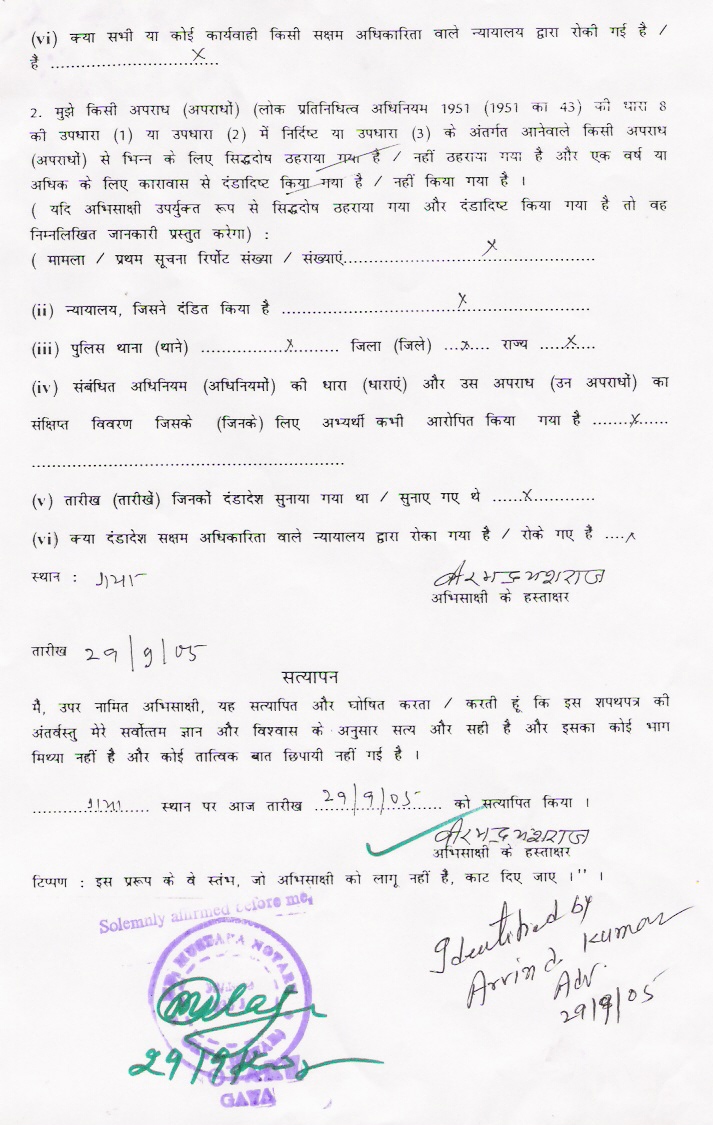 (vi) क्या सभी या कोई कार्यवाही किसी सक्षम अधिकारिता वाले न्यायालय द्वारा रोकी गई है /
है ................x...
2. मुझे किसी अपराध (अपराधों) (लोक प्रतिनिधित्व अधिनियम 1951 (1951 का 43) की धारा 8
की उपधारा (1) या उपधारा (2) में निर्दिष्ट या उपधारा (3) के अंतर्गत आनेवाले किसी अपराध
(अपराधों) से भिन्न के लिए सिद्धदोष ठहराया गया है / नहीं ठहराया गया है और एक वर्ष या
अधिक के लिए कारावास से दंडादिष्ट किया गया है / नहीं किया गया है ।
( यदि अभिसाक्षी उपर्युक्त रूप से सिद्धदोष ठहराया गया और दंडादिष्ट किया गया है तो वह
निम्नलिखित जानकारी प्रस्तुत करेगा) :
( मामला / प्रथम सूचना रिर्पोट संख्या / संख्याएं..............x..........
(ii) न्यायालय, जिसने दंडित किया है ..................x..............
(iii) पुलिस थाना (थाने) ............x....... जिला (जिले) ...x.... राज्य ....x....
(iv) संबंधित अधिनियम (अधिनियमों) की धारा (धाराएं) और उस अपराध (उन अपराधों) का
संक्षिप्त विवरण जिसके (जिनके) लिए अभ्यर्थी कभी आरोपित किया गया है .......x.....
..........................................................
(v) तारीख (तारीखें) जिनकों दंडादेश सुनाया गया था / सुनाए गए थे ......x...........
(vi) क्या दंडादेश सक्षम अधिकारिता वाले न्यायालय द्वारा रोका गया है / रोके गए है ....x
स्थान : गया
अभिसाक्षी के हस्ताक्षर
तारीख 29/9/05
सत्यापन
मै, उपर नामित अभिसाक्षी, यह सत्यापित और घोषित करता / करती हूं कि इस शपथपत्र की
अंतर्वस्तु मेरे सर्वोत्तम ज्ञान और विश्वास के अनुसार सत्य और सही है और इसका कोई भाग
मिथ्या नहीं है और कोई तात्विक बात छिपायी नहीं गई है ।
..........गया...... स्थान पर आज तारीख ..29/9/05.... को सत्यापित किया ।
अभिसाक्षी के हस्ताक्षर
टिप्पण : इस प्ररूप के वे स्तंभ, जो अभिसाक्षी को लागू नहीं है, काट दिए जाए ।'' ।
Solemnly affirmed before me,
Identified by
Arvind Kumar
Adv.
29/9/05
NOTARY
29/9/
GAYA